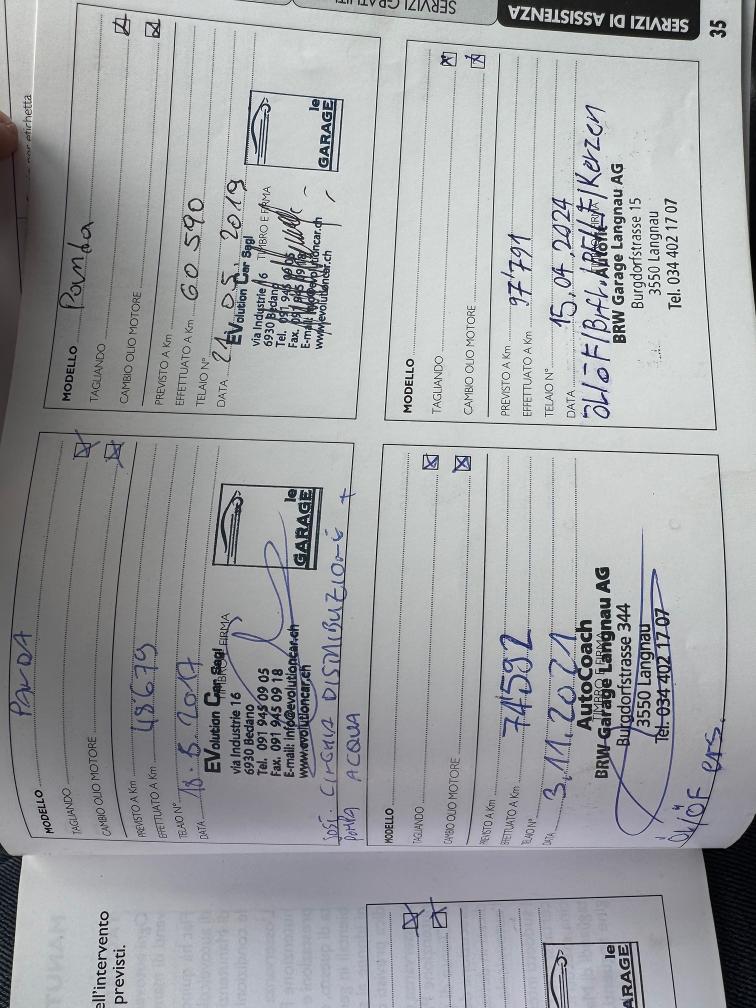 SERVIZI GRATUITI
SERVIZI DI ASSISTENZA
35
MODELLO PANDA
TAGLIANDO
CAMBIO OLIO MOTORE
PREVISTO A Km
EFFETTUATO A Km 48679
TELAIO N°
DATA 18.5.2017
TIMBRO E FIRMA
EVolution Car Sagl
via Industrie 16
6930 Bedano
Tel. 091 945 09 05
Fax. 091 945 09 18
E-mail: info@evolutioncar.ch
www.evolutioncar.ch
le
GARAGE
SOST. CINGHIA DISTRIBUZIONE +
POMPA ACQUA
MODELLO Panda
TAGLIANDO
CAMBIO OLIO MOTORE
PREVISTO A Km
EFFETTUATO A Km 60 590
TELAIO N°
DATA 21 05. 2019
TIMBRO E FIRMA
EVolution Car Sagl
via Industrie 16
6930 Bedano
Tel. 091 945 09 05
Fax. 091 945 09 18
E-mail: info@evolutioncar.ch
www.evolutioncar.ch
le
GARAGE
MODELLO
TAGLIANDO
CAMBIO OLIO MOTORE
PREVISTO A Km
EFFETTUATO A Km 74592
TELAIO N°
DATA 3.11.2021
TIMBRO E FIRMA
AutoCoach
BRW Garage Langnau AG
Burgdorfstrasse 344
3550 Langnau
Tel. 034 402 17 07
Öl/ÖF ers.
MODELLO
TAGLIANDO
CAMBIO OLIO MOTORE
PREVISTO A Km
EFFETTUATO A Km 97'791
TELAIO N°
DATA 15.04.2024
BRW Garage Langnau AG
Burgdorfstrasse 15
3550 Langnau
Tel. 034 402 17 07
ell'intervento
previsti.
le
ARAGE